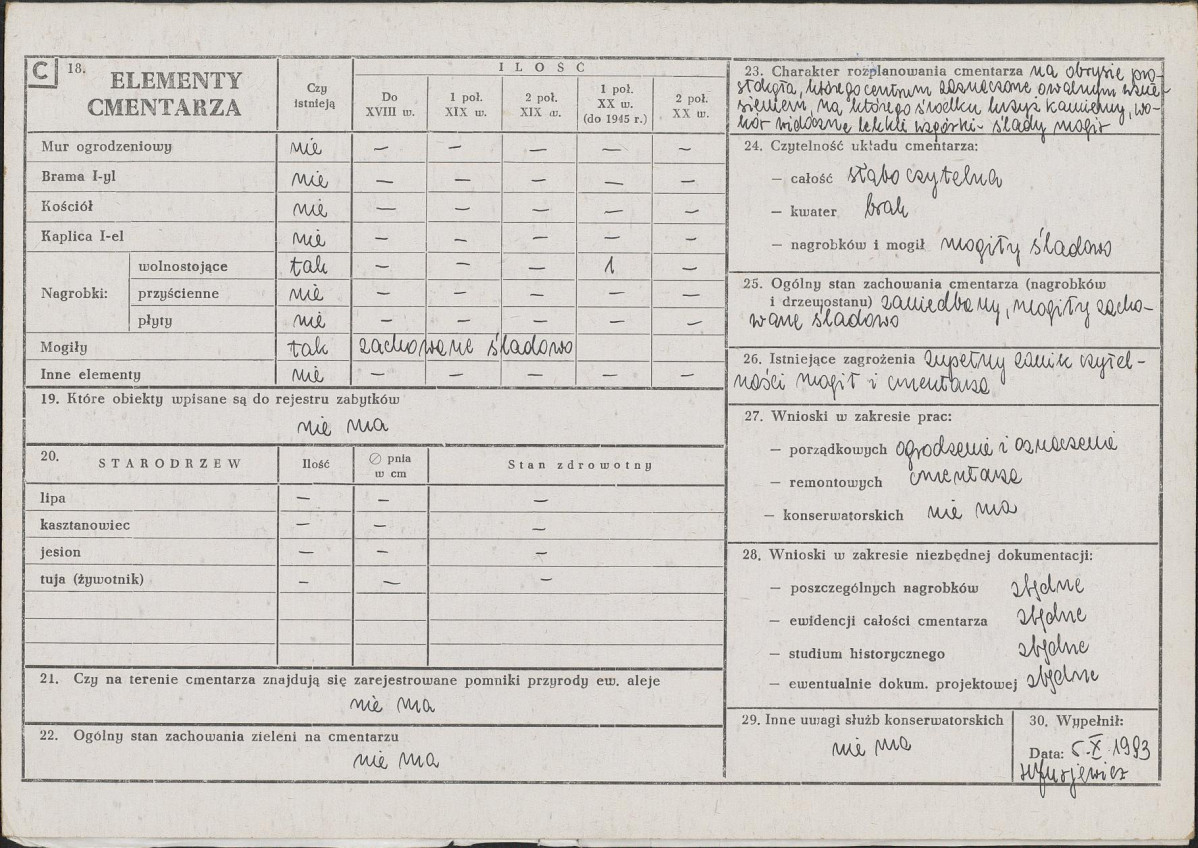 C 18. ELEMENTY CMENTARZA
Czy istnieją
ILOŚĆ
Do XVIII w.
1 poł. XIX w.
2 poł. XIX w.
1 poł. XX w. (do 1945 r.)
2 poł. XX w.
Mur ogrodzeniowy nie — — — — —
Brama I-yl nie — — — — —
Kościół nie — — — — —
Kaplica I-el nie — — — — —
Nagrobki:
wolnostojące tak — — — 1 —
przyścienne nie — — — — —
płyty nie — — — — —
Mogiły tak zachowane śladowo
Inne elementy nie — — — — —
19. Które obiekty wpisane są do rejestru zabytków
nie ma
20. STARODRZEW Ilość ∅ pnia w cm Stan zdrowotny
lipa — — —
kasztanowiec — — —
jesion — — —
tuja (żywotnik) — — —
21. Czy na terenie cmentarza znajdują się zarejestrowane pomniki przyrody ew. aleje
nie ma
22. Ogólny stan zachowania zieleni na cmentarzu
nie ma
23. Charakter rozplanowania cmentarza na obrysie pro-
stokąta, którego centrum zaznaczone owalnym wznie-
sieniem, na którego środku krzyż kamienny, wo-
kół widoczne lekkie wzgórki - ślady mogił
24. Czytelność układu cmentarza:
— całość słabo czytelna
— kwater brak
— nagrobków i mogił mogiły śladowo
25. Ogólny stan zachowania cmentarza (nagrobków
i drzewostanu) zaniedbany, mogiły zacho-
wane śladowo
26. Istniejące zagrożenia zupełny zanik czytel-
ności mogił i cmentarza
27. Wnioski w zakresie prac:
— porządkowych ogrodzenie i oznaczenie
— remontowych cmentarza
— konserwatorskich nie ma
28. Wnioski w zakresie niezbędnej dokumentacji:
— poszczególnych nagrobków zbędne
— ewidencji całości cmentarza zbędne
— studium historycznego zbędne
— ewentualnie dokum. projektowej zbędne
29. Inne uwagi służb konserwatorskich
nie ma
30. Wypełnił:
Data: 5.X.1983